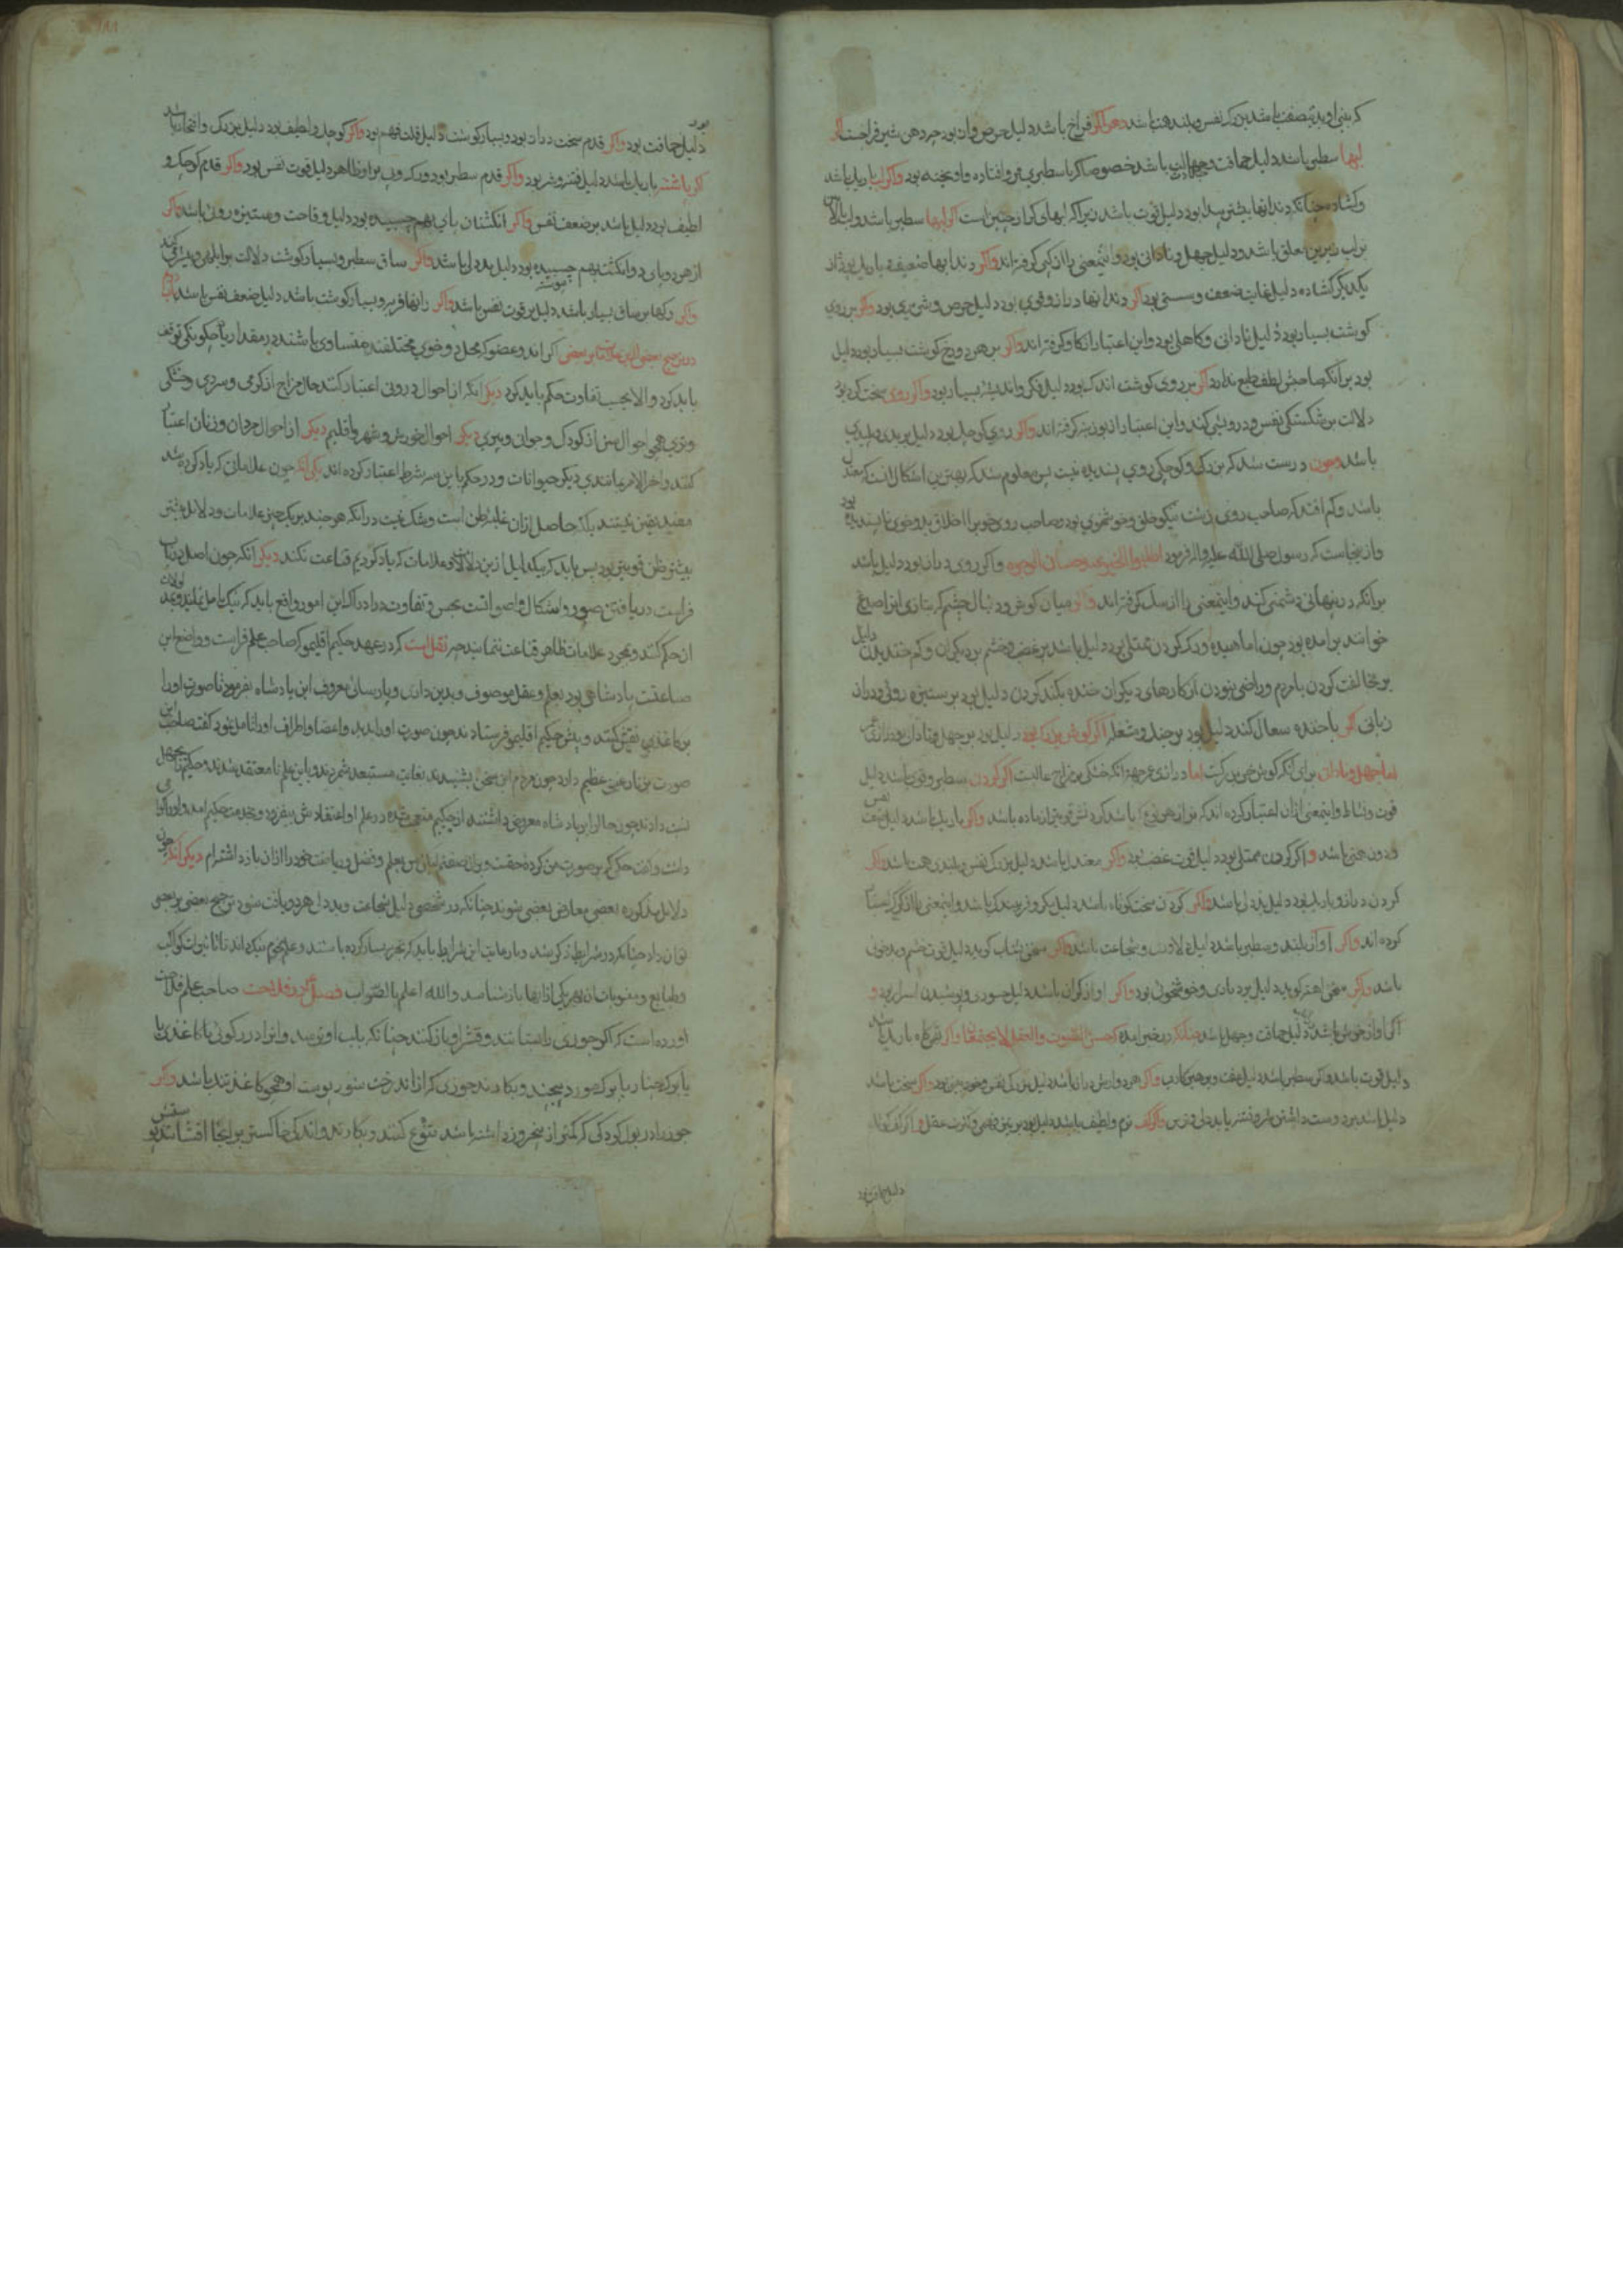 که بینی او بدین صفت باشد بزرک نفس و بلند همت باشد دهن اکر فراخ باشد دلیل حرص و ان بود جه دهن شیر فراخست اکر
لبها سطبر باشد دلیل حماقت و جهالت باشد خصوصا که با سطبری فرو افتاده و اویخته بود واکر لب باریک باشد
وکشاده جنانکه دندانها بیشتر پیدا بود دلیل قوت باشد زیراکه لبهای کراز جنین است اکر لبها سطبر باشد و لب بالائین
بر لب زیرین معلق باشد ودلیل جهل و نادانی بود و اینمعنی را از کپی کرفته اند واکر دندانها ضعیف و باریک بود و از
یکدیکر کشاده دلیل غایت ضعف و سستی بود اکر دندانها دراز وقوی بود دلیل حرص و شریری بود واکر بر روی
کوشت بسیار بود دلیل نادانی وکاهلی بود واین اعتبار از کاو کرفته اند واکر بر هر دو رخ کوشت بسیار بود دلیل
بود بر آنکه صاحبش لطف طبع ندارد اکر بر روی کوشت اندک بود دلیل فکر واندیشه بسیار بود واکر روی سخت کرد بود
دلالت بر شکستکی نفس و درویشی کند واین اعتبار از بوزینه کرفته اند واکر روی کوچک بود دلیل بر بدی و پلیدی
باشد وچون درست شد که بزرکی وکوچکی روی پسندیده نیست پس معلوم شد که بهترین اشکال انست که معتدل
باشد وکم افتد که صاحب روی زشت نیکو خلق وخوشخوی بود و صاحب روی خوب را اخلاق بد و خوی ناپسندیده بود
واز اینجاست که رسول صلی الله علیه واله فرمود اطلبوا الخیر عند حسان الوجوه واکر روی دراز بود دلیل باشد
برانکه در پنهانی دشمنی کند و اینمعنی را از سک کرفته اند واکر میان کوش و دنبال چشم که بتازی انرا صدغ
خوانند بر امده بود چون اماهیده ورک کردن ممتلی بود دلیل باشد بر غضب وخشم بر دیکران وکم خندیدن دلیل
بر مخالفت کردن با مردم و راضی نبودن از کارهای دیکران خنده بلند کردن دلیل بود بر ستیزه روئی و دراز
زبانی اکر با خنده سعال کند دلیل بود بر حیله و مشغله اکر کوش بزرک بود دلیل بود بر جهل ونادانی
اما جهل ونادان برای آنکه کوش خر بزرکست اما درازی عمر جهة انکه خشکی بر مزاج غالبست اکر کردن سطبر وقوی باشد دلیل
قوت ونشاط واینمعنی ازان اعتبار کرده اند که نر از هر نوع باشد کردنش قویتر از ماده باشد واکر باریک باشد دلیل ضعف نفس
ودون همتی باشد واکر کردن ممتلی بود دلیل قوت غضب بود واکر معتدل باشد دلیل بزرک نفس وبلندی همت باشد واکر
کردن دراز وباریک بود دلیل بددلی باشد واکر کردن سخت کوتاه باشد دلیل مکر و فریبندکی باشد واینمعنی را از کرک استنباط
کرده اند واکر آواز بلند وسطبر باشد دلیل دلاوری وشجاعت باشد واکر سخن بشتاب کوید دلیل قوت خشم و بدخوئی
باشد واکر سخن اهسته کوید دلیل بردباری وخوشخوئی بود واکر آواز کران باشد دلیل حسوری وپوشیدن اسرار بود و
اکر اواز خوش باشد دلیل حماقت وجهل باشد جنانکه در خبر امده که حسن الصوت والعقل لا یجتمعان واکر نفس کوتاه باریک باشد
دلیل قوت باشد واکر سطبر باشد دلیل هر دو بازو دراز باشد دلیل بزرکی نفس واکر سخت باشد
دلیل باشد بر دوست داشتن شر وفتنه یا بددلی و ترس واکر کف نرم ولطیف باشد دلیل بود بر تیزفهمی وکثرت عقل واکر کف کوتاه
دلیل حماقت بود
دلیل حماقت بود واکر قدم سخت دراز بود وبسیار کوشت دلیل قلت فهم بود واکر کوچک ولطیف بود دلیل بزرک و افتخار باشد
اکر پاشنه باریک باشد دلیل فتنه و شر بود واکر قدم سطبر بود ورک و پی بر او ظاهر دلیل قوت نفس بود واکر قدم کوچک و
لطیف بود دلیل باشد بر ضعف نفس واکر انکشتان پای بهم چسبیده بود دلیل وقاحت وستیزه روئی باشد واکر
از هر دو پای دو انکشت بهم چسبیده بود دلیل بددلی باشد واکر ساق سطبر وبسیار کوشت دلالت بر ابلهی وبیشرمی کند
واکر رکها بر ساق بسیار باشد دلیل بر قوت نفس باشد واکر رانها فربه وبسیار کوشت باشد دلیل ضعف نفس باشد باب دوم
در ترجیح بعضی ازین علامات بر بعضی اکر اندو عضو که محل دو خوی مختلفند متساوی باشند در مقدار یا چکونکی توقف
باید کرد والا بحسب تفاوت حکم باید کرد دیکر انکه از احوال درونی اعتبار کنند حال مزاج از کرمی وسردی وخشکی
وتری همچو احوال سن از کودکی وجوانی وپیری دیکر احوال خورش وشهر واقلیم دیکر از احوال مردان وزنان اعتبار
کنند واخر الامر مانندی دیکر حیوانات ودر حکم باین سه شرط اعتبار کرده اند یکی انکه چون علاماتی که یاد کرده شد
مفید یقین نیستند بلکه حاصل ازان غلبه ظن است وشک نیست درانکه هر چند بر یک چیز علامات ودلائل بیشتر
بیشتر ظن قویتر بود پس باید که بیک دلیل ازین دلائل و علامات که یاد کردیم قناعت نکند دیکر انکه چون اصل در باب
فراست دریافتن صور واشکال واصواتست بحس وتفاوت در ادراک این امور واقع باید که نیک تامل نماید وبعد
ازان حکم کند وبمجرد علامات ظاهر قناعت ننماید جه نقل است که در عهد حکیم اقلیمو که صاحب علم فراست و واضع این
صناعتست پادشاهی بود بعلم وعقل موصوف وبدین داری وپارسائی معروف این پادشاه بفرمود تا صورت او را
بر کاغذی نقش کنند وپیش حکیم اقلیمو فرستادند چون صورت او را بدید واعضا واطراف او را تامل نمود کفت صاحب این
صورت بزنا رغبتی عظیم دارد چون مردم این سخن بشنیدند بغایت مستبعد شمردند و باین علم نا معتقد شدند و حکیم را بجهل
نسبت دادند چون حال را بر پادشاه معروض داشتند از حکیم متعجب شده در علم او اعتقادش بیفزود وبخدمت حکیم امد و او را
دانست وکفت حکمی که بر صورت من کرده حقست و من بعلم وفضل وریاضت خود را ازان باز داشته ام دیکر آنکه چون
دلائل مذکوره بعضی معارض بعضی شوند چنانکه در شخصی دلیل شجاعت وبددلی هر دو یافت شود ترجیح بعضی بر بعضی
توان داد چنانکه در شرایط ذکر شد وبا رعایت این شرایط باید که تجربه بسیار کرده باشند وعلم نجوم نیک داند تا تاثیرات کواکب
وطبایع ومنسوبات ان بهر یکی ازانها باز شناسد والله اعلم بالصواب فصل در فلاحت صاحب علم فلاحت
اورده است که اکر جوزی را بستانند وقشر او باز کنند چنانکه بلب او نرسد وانرا در رکوئی یا کاغذی یا
یا برک چنار یا برک مورد پیچند وبکارند جوزی که ازان درخت شود پوست او همچو کاغذ تنک باشد واکر
جوز را در بول کودکی که کمتر از پنج روز داشته باشد نقوع کنند وبکارند و اندکی خاکستر بر انجا افشانند